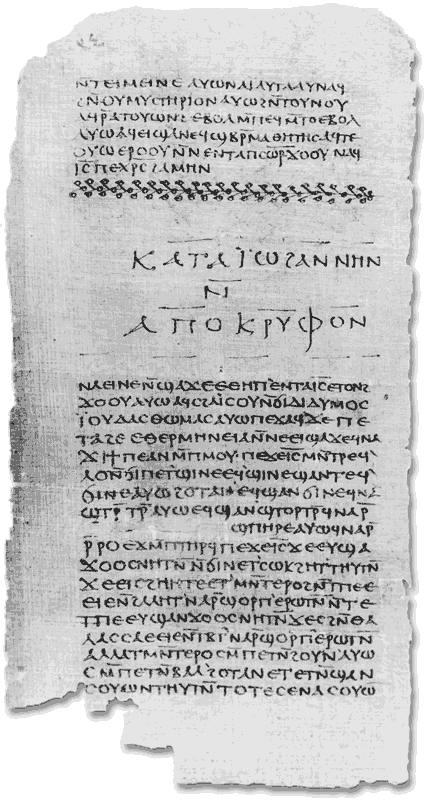 ⲛⲧⲉⲉⲓⲙⲉⲓⲛⲉ ⲁⲩⲱ ⲛⲁⲓ ⲁⲩⲧⲁⲁⲩ ⲛⲁϥ
ϩⲛⲛⲟⲩⲙⲩⲥⲧⲏⲣⲓⲟⲛ ⲁⲩⲱ ϩⲛⲧⲟⲩⲛⲟⲩ
ⲁϥⲣⲁⲧⲟⲩⲱⲛϩ ⲉⲃⲟⲗ ⲙⲡⲉϥⲙⲧⲟ ⲉⲃⲟⲗ
ⲁⲩⲱ ⲁϥⲉⲓ ϣⲁ ⲛⲉϥϣⲃⲣⲙⲁⲑⲏⲧⲏⲥ ⲁϥⲧⲉ
ⲟⲩⲱ ⲉⲣⲟⲟⲩ ⲛⲛⲉⲛⲧⲁⲡⲥⲱⲣ ϫⲟⲟⲩ ⲛⲁϥ
ⲓⲥ̅ ⲡⲉⲭⲣⲥ̅ ϩⲁⲙⲏⲛ
ⲕⲁⲧⲁ ⲓⲱϩⲁⲛⲛⲏⲛ
ⲛ̅
ⲁⲡⲟⲕⲣⲩⲫⲟⲛ
ⲛⲁⲉⲓ ⲛⲉ ⲛ̅ϣⲁϫⲉ ⲉⲑⲏⲡ ⲉⲛⲧⲁ ⲓⲥ̅ ⲉⲧⲟⲛϩ
ϫⲟⲟⲩ ⲁⲩⲱ ⲁϥⲥϩⲁⲓⲥⲟⲩ ⲛ̅ϭⲓ ⲇⲓⲇⲩⲙⲟⲥ
ⲓⲟⲩⲇⲁⲥ ⲑⲱⲙⲁⲥ ⲁⲩⲱ ⲡⲉϫⲁϥ ϫⲉ ⲡⲉ
ⲧⲁϩⲉ ⲉⲑⲉⲣⲙⲏⲛⲉⲓⲁ ⲛ̅ⲛⲉⲉⲓϣⲁϫⲉ ϥⲛⲁ
ϫⲓ ϯⲡⲉ ⲁⲛ ⲙ̅ⲡⲙⲟⲩ ⲡⲉϫⲉ ⲓⲥ̅ ⲙⲛ̅ⲧⲣⲉϥ
ⲗⲟ ⲛ̅ϭⲓ ⲡⲉⲧϣⲓⲛⲉ ⲉϥϣⲓⲛⲉ ϣⲁⲛⲧⲉϥ
ϭⲓⲛⲉ ⲁⲩⲱ ϩⲟⲧⲁⲛ ⲉϥϣⲁⲛϭⲓⲛⲉ ϥⲛⲁ
ϣⲧⲣ̅ⲧⲣ̅ ⲁⲩⲱ ⲉϥϣⲁⲛϣⲧⲟⲣⲧⲣ̅ ϥⲛⲁⲣ̅
ϣⲡⲏⲣⲉ ⲁⲩⲱ ϥⲛⲁⲣ̅
ⲣ̅ⲣⲟ ⲉϫⲙ̅ ⲡⲧⲏⲣϥ ⲡⲉϫⲉ ⲓⲥ̅ ϫⲉ ⲉⲩϣⲁ
ϫⲟⲟⲥ ⲛⲏⲧⲛ̅ ⲛ̅ϭⲓ ⲛⲉⲧⲥⲱⲕ ϩⲏⲧ ⲧⲏⲩⲧⲛ̅
ϫⲉ ⲉⲓⲥϩⲏⲏⲧⲉ ⲉⲧⲙⲛ̅ⲧⲉⲣⲟ ϩⲛ̅ ⲧⲡⲉ ⲉ
ⲉⲓⲉ ⲛ̅ϩⲁⲗⲏⲧ ⲛⲁⲣ̅ ϣⲟⲣⲡ ⲉⲣⲱⲧⲛ̅ ⲛ̅ⲧⲉ
ⲧⲡⲉ ⲉⲩϣⲁⲛϫⲟⲟⲥ ⲛⲏⲧⲛ̅ ϫⲉ ⲥϩⲛ̅ ⲑⲁ
ⲗⲁⲥⲥⲁ ⲉⲉⲓⲉ ⲛ̅ⲧⲃⲧ ⲛⲁⲣ̅ ϣⲟⲣⲡ ⲉⲣⲱⲧⲛ̅
ⲁⲗⲗⲁ ⲧⲙⲛ̅ⲧⲉⲣⲟ ⲥⲙ̅ⲡⲉⲧⲛ̅ϩⲟⲩⲛ ⲁⲩⲱ
ⲥⲙ̅ⲡⲉⲧⲛ̅ⲃⲁⲗ ϩⲟⲧⲁⲛ ⲉⲧⲉⲧⲛ̅ϣⲁⲛ
ⲥⲟⲩⲱⲛ ⲧⲏⲩⲧⲛ̅ ⲧⲟⲧⲉ ⲥⲉⲛⲁⲥⲟⲩⲱ